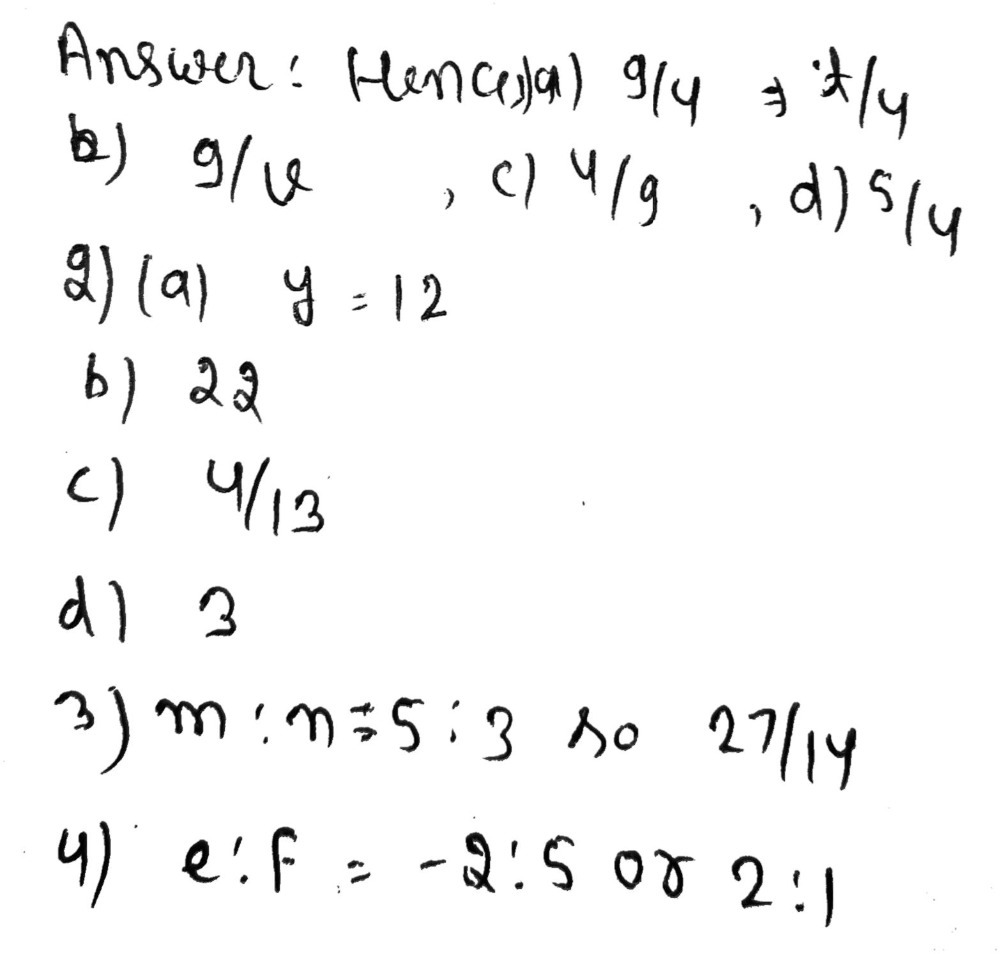 Answer: Hence, a) 9/4 ⇒ t/4
b) 9/v , c) 4/9 , d) 5/4
2) (a) y = 12
b) 22
c) 4/13
d) 3
3) m : n = 5 : 3 so 27/14
4) e : F = -2 : 5 or 2 : 1